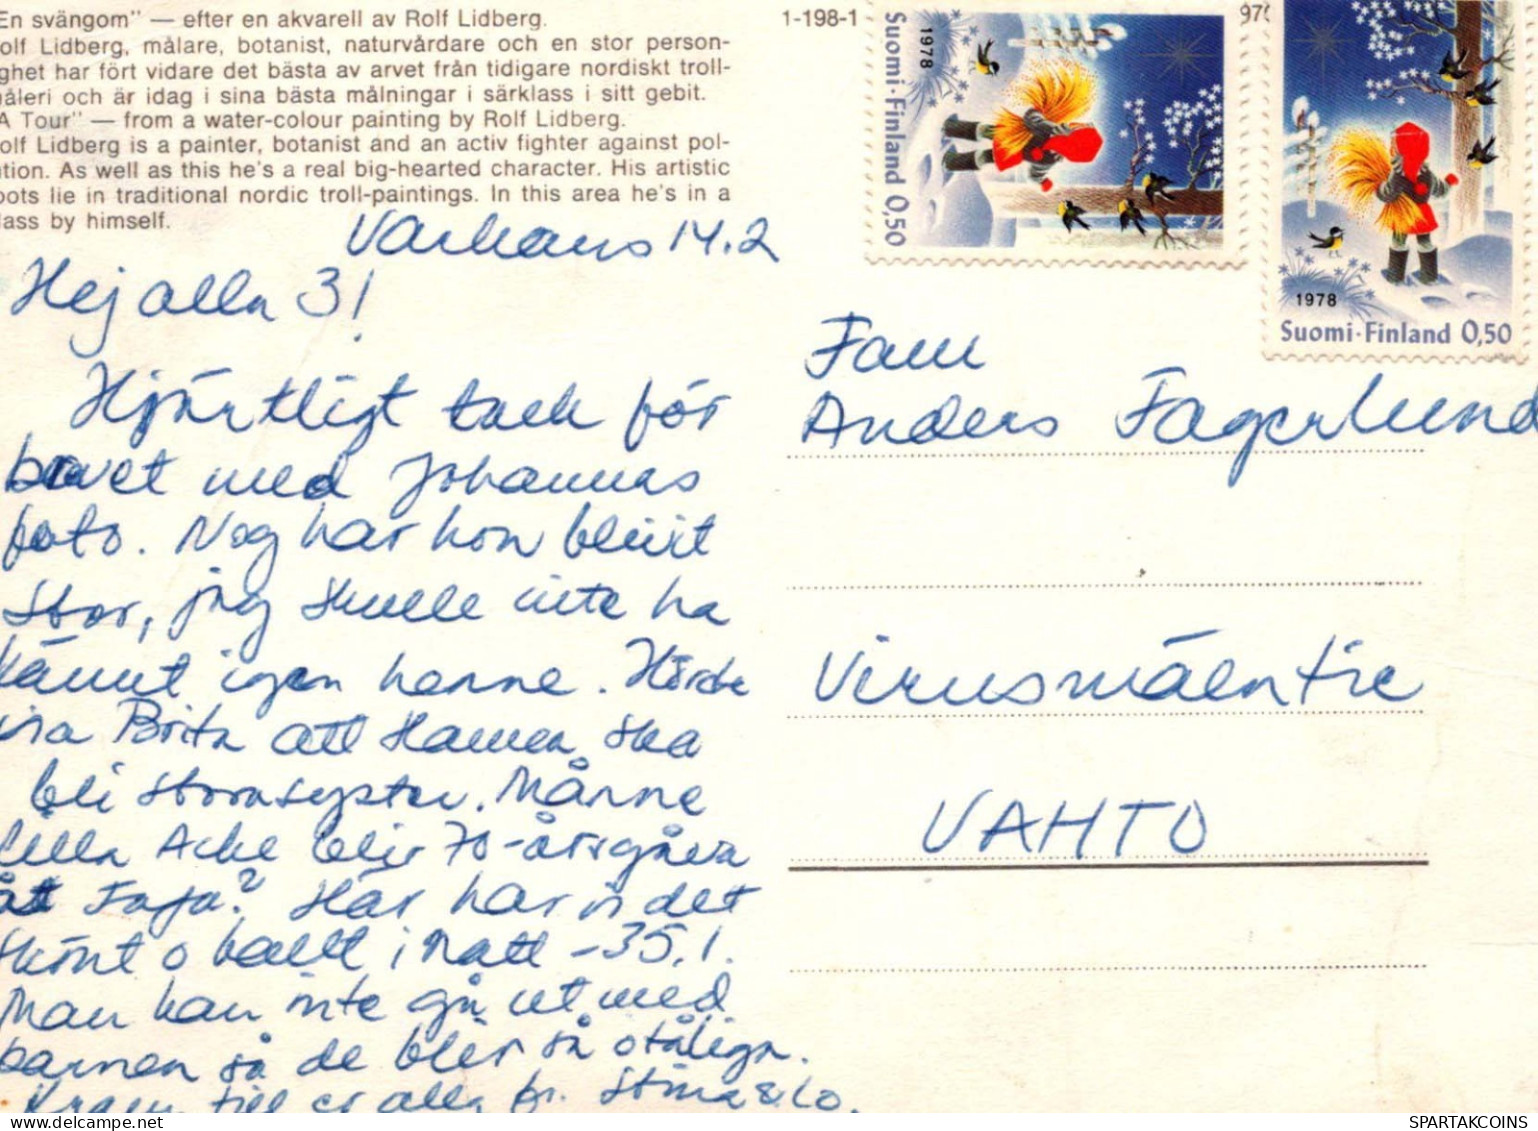 En svängom" — efter en akvarell av Rolf Lidberg.
olf Lidberg, målare, botanist, naturvårdare och en stor person-
ghet har fört vidare det bästa av arvet från tidigare nordiskt troll-
åleri och är idag i sina bästa målningar i särklass i sitt gebit.
A Tour" — from a water-colour painting by Rolf Lidberg.
olf Lidberg is a painter, botanist and an activ fighter against pol-
ution. As well as this he's a real big-hearted character. His artistic
oots lie in traditional nordic troll-paintings. In this area he's in a
lass by himself.
1-198-1
Suomi·Finland 0,50
1978
1978
Suomi·Finland 0,50
Varkaus 14.2
Hej alla 3!
Hjärtligt tack för
brevet med Johannas
foto. Nog har hon blivit
stor, jag skulle inte ha
känt igen henne. Hörde
Brita att Hanna ska
bli storasyster. Månne
lilla Acke blir 70-årsgåva
åt Fafa? Här har vi det
skönt o kallt i natt -35,1.
Man kan inte gå ut med
barnen så de blir så otåliga.
Kram till er alla fr. Stina & Co.
Fam
Anders Fagerlund
Virusmäentie
VAHTO
SPARTAKCOINS